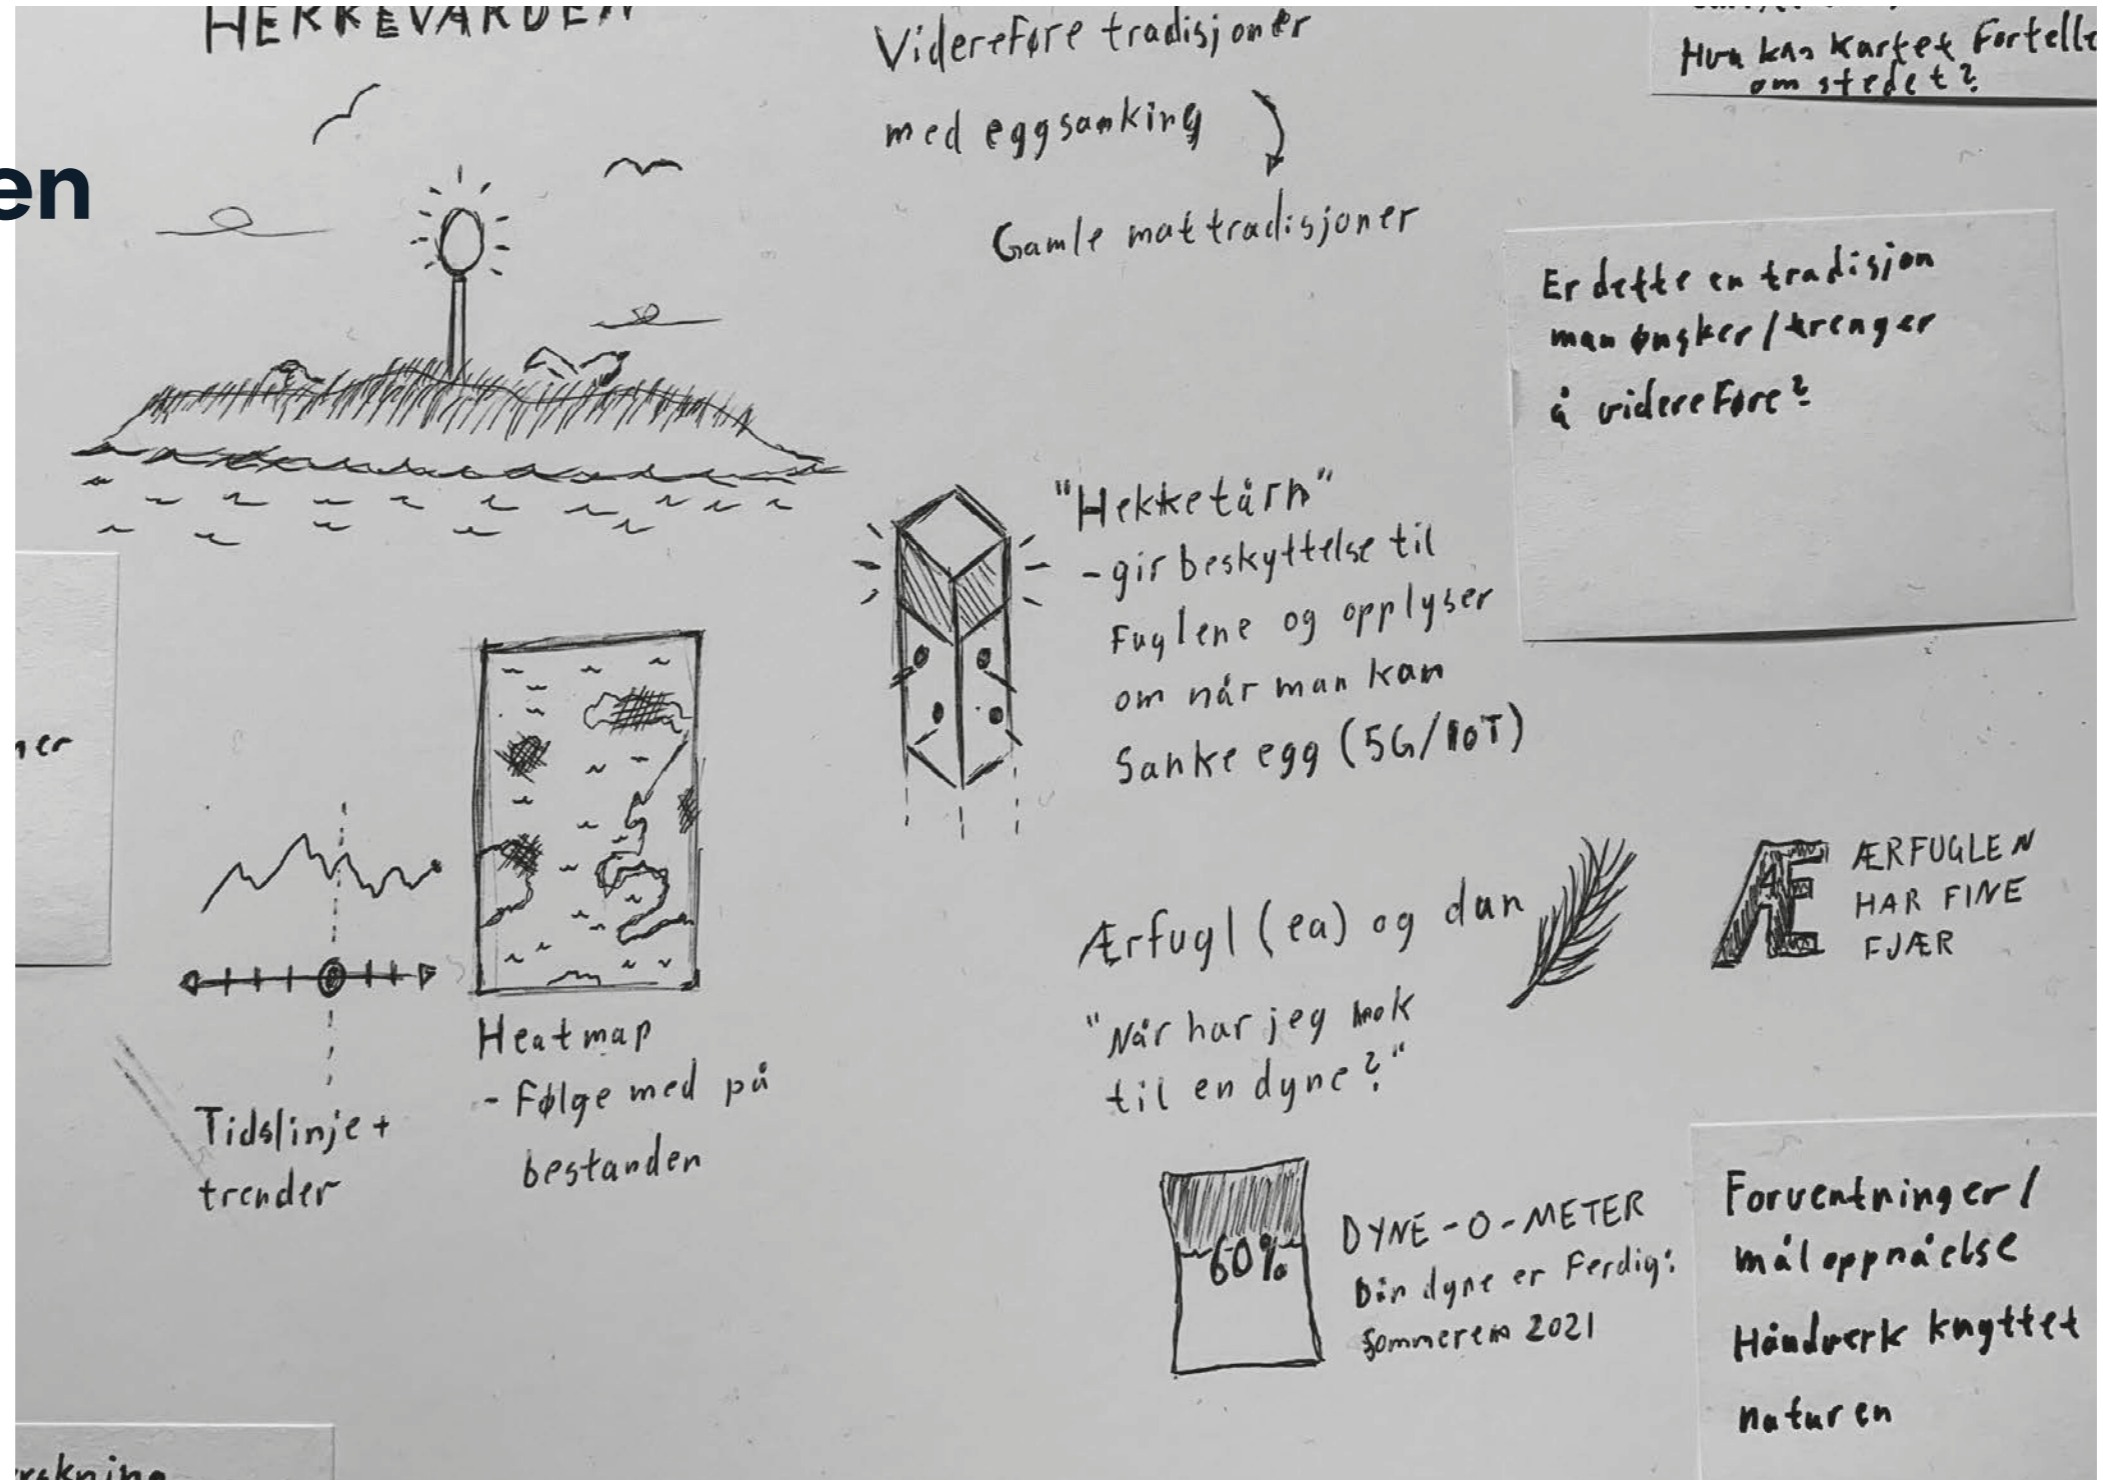 HEKKEVARDEN
en
Videreføre tradisjoner
med eggsanking
Gamle mattradisjoner
Hva kan kartet fortelle
om stedet?
Er dette en tradisjon
man ønsker/trenger
å videreføre?
"Hekketårn"
- gir beskyttelse til
fuglene og opplyser
om når man kan
Sanke egg (5G/IoT)
ner
Tidslinje +
trender
Heatmap
- Følge med på
bestanden
Ærfugl (ea) og dun
"Når har jeg nok
til en dyne?"
Æ
ÆRFUGLEN
HAR FINE
FJÆR
60%
DYNE-O-METER
Din dyne er ferdig:
Sommeren 2021
Forventninger/
måloppnåelse
Håndverk knyttet
naturen